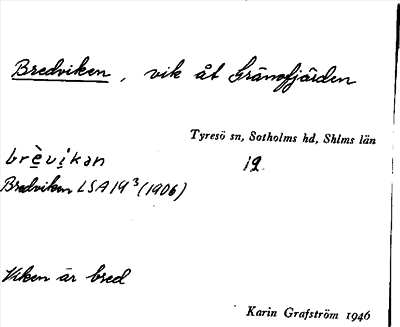 Bredviken, vik åt Gränsfjärden
Tyresö sn, Sotholms hd, Shlms län
brèvikan 12.
Bredviken LSA 19³ (1906)
Viken är bred
Karin Grafström 1946